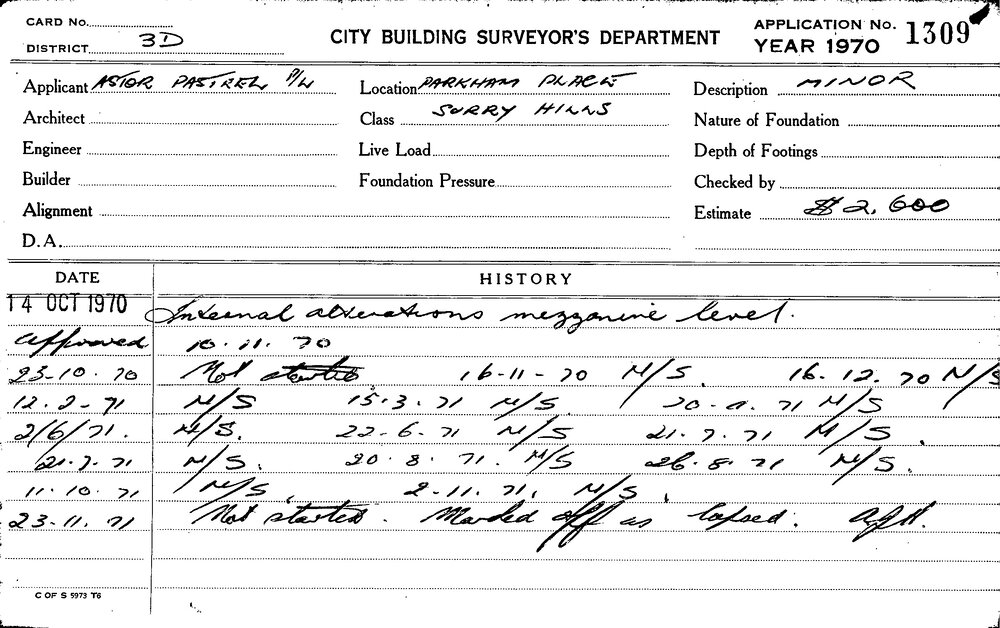 CARD No.
DISTRICT 3D
CITY BUILDING SURVEYOR'S DEPARTMENT
APPLICATION No. 1309
YEAR 1970
Applicant ASTOR PASTREL P/L Location PARKHAM PLACE Description MINOR
Architect Class SURRY HILLS Nature of Foundation
Engineer Live Load Depth of Footings
Builder Foundation Pressure Checked by
Alignment Estimate $2,600
D.A.
DATE HISTORY
14 OCT 1970 Internal alterations mezzanine level.
Approved 10.11.70
23-10.70 Not started 16-11-70 N/S. 16.12.70 N/S
12.2-71 N/S 15.3.71 N/S. 20-4.71 N/S
2/6/71. N/S. 22-6-71 N/S 21.7.71 N/S.
21.7.71 N/S. 20.8.71. N/S 26.8.71 N/S.
11.10.71 N/S. 2-11.71. N/S.
23.11.71 Not started. Marked off as lapsed.
C OF S 5973 T6